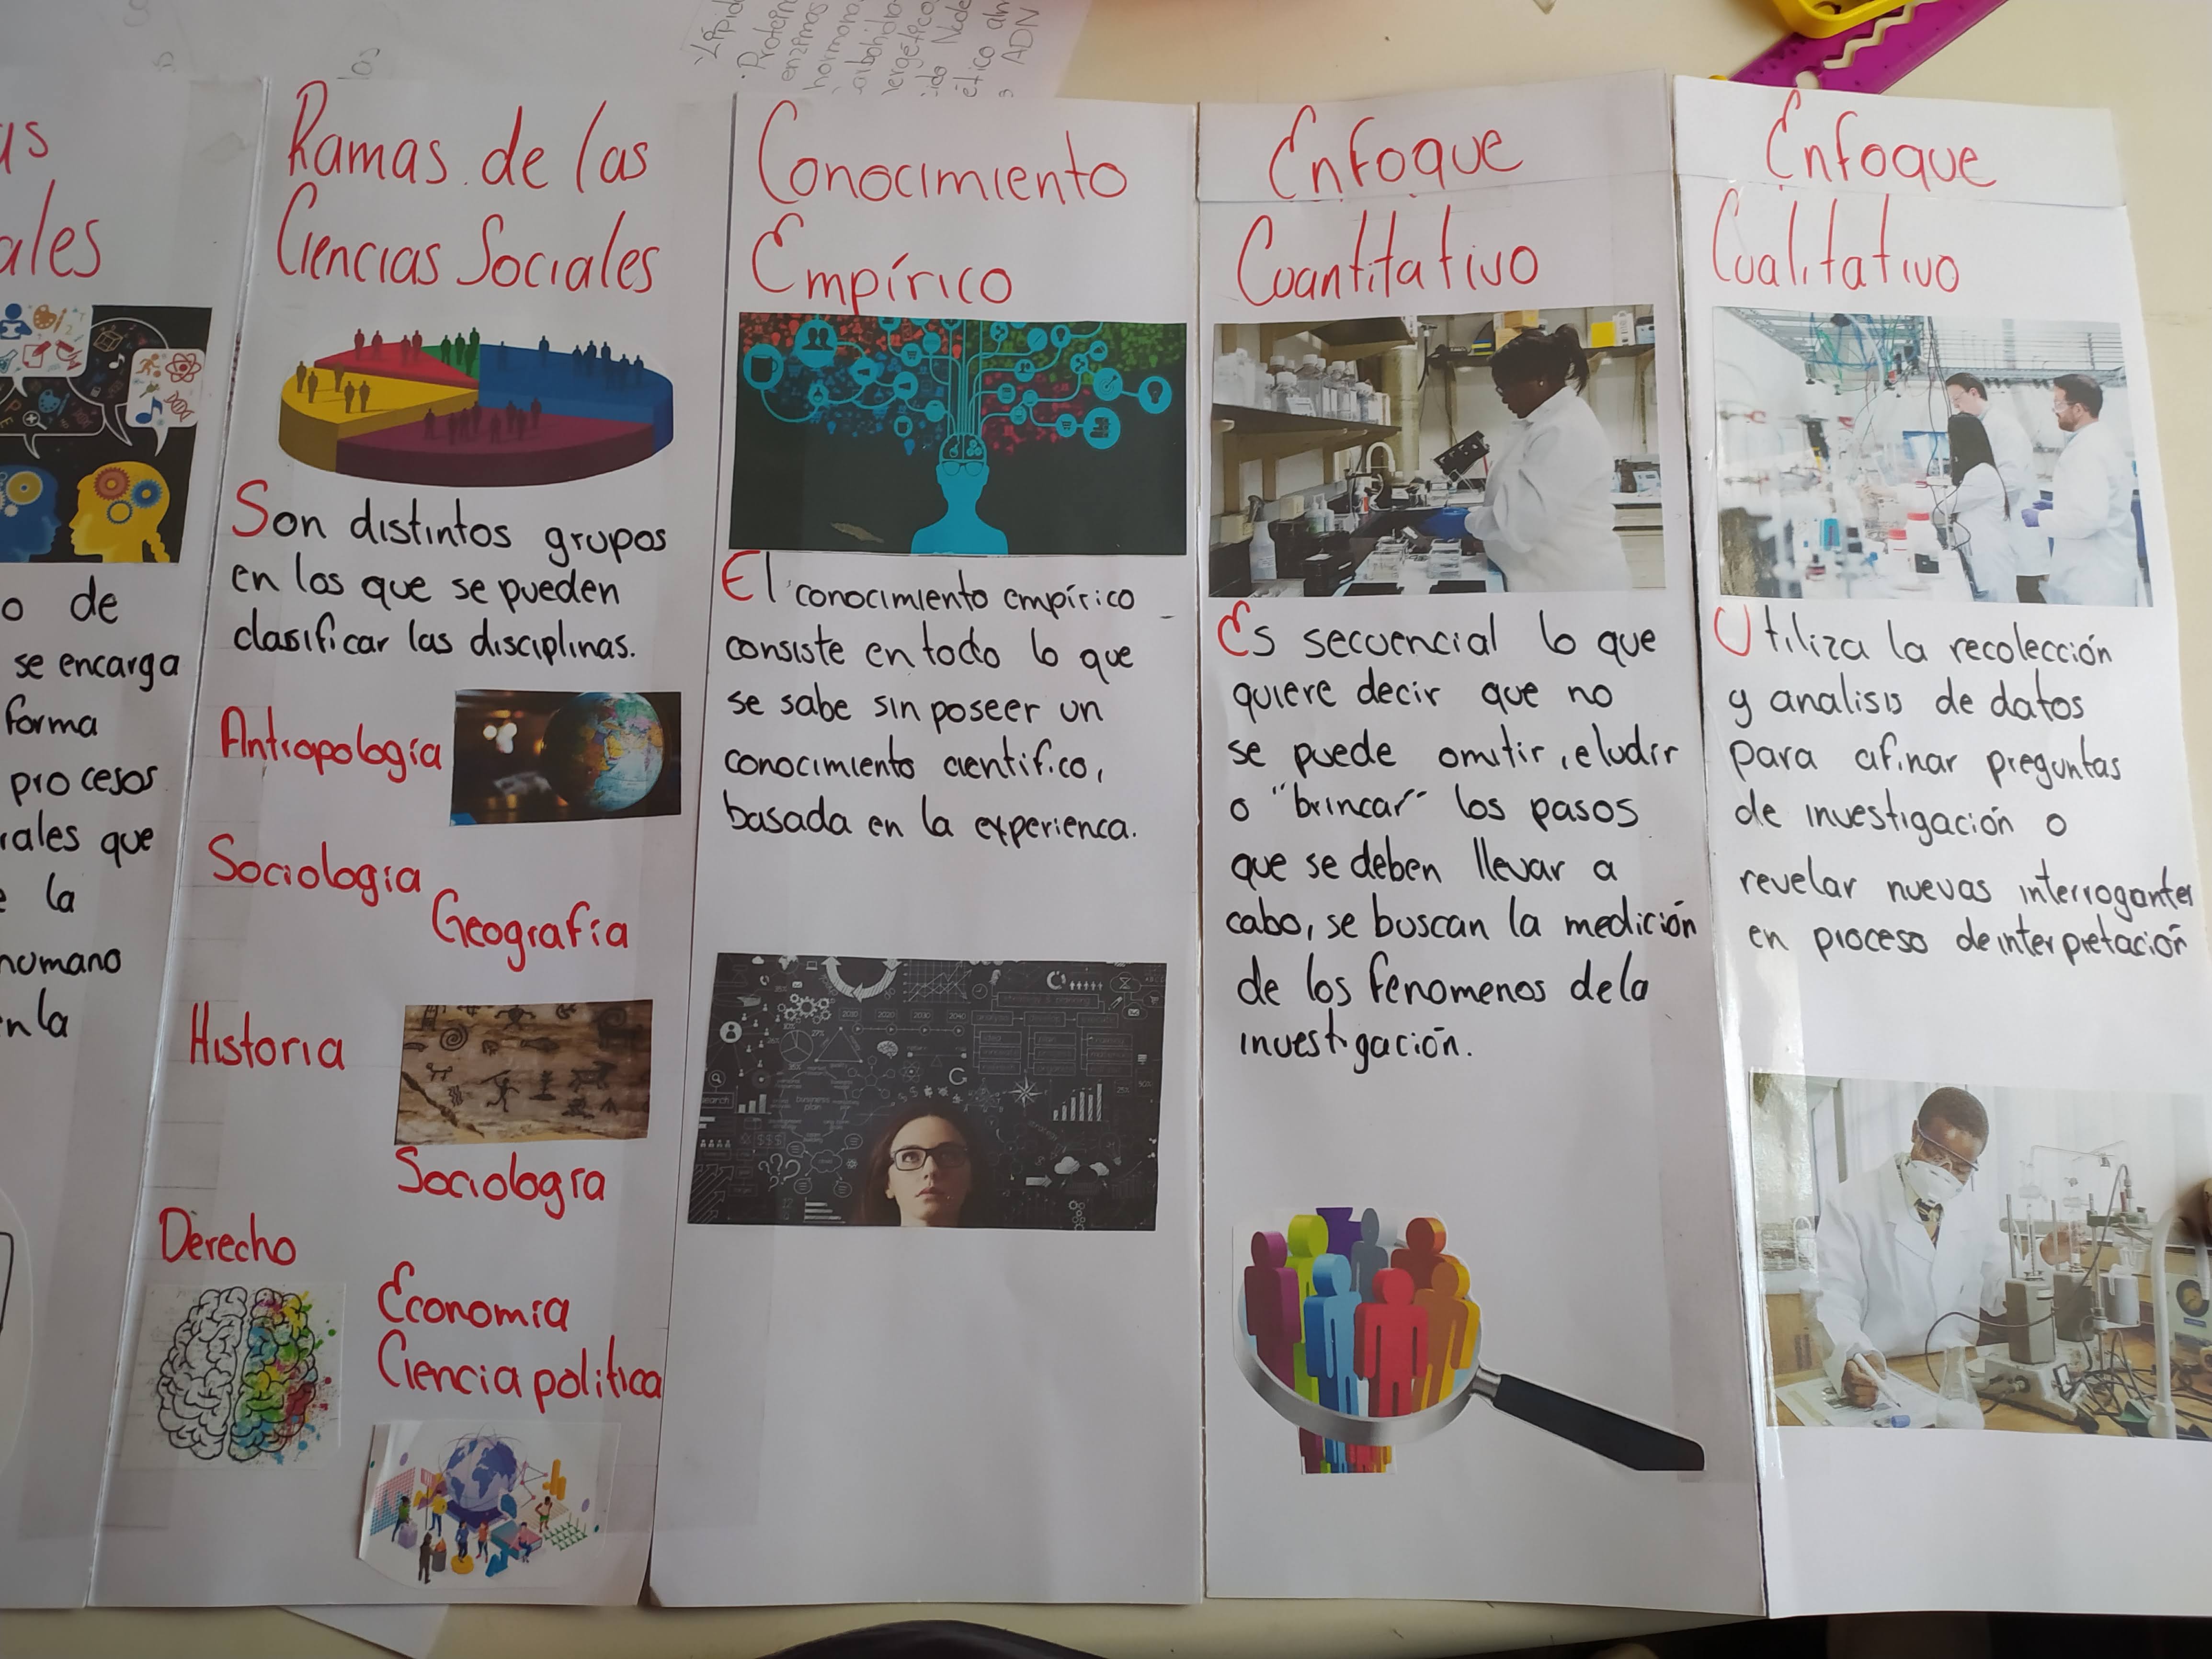 as
ales
o de
se encarga
forma
procesos
rales que
e la
humano
en la
Ramas de las
Ciencias Sociales
Son distintos grupos
en los que se pueden
clasificar las disciplinas.
Antropología
Sociología
Geografía
Historia
Sociología
Derecho
Economía
Ciencia politica
Conocimiento
Empírico
El conocimiento empírico
consiste en todo lo que
se sabe sin poseer un
conocimiento cientifico,
basada en la experienca.
Enfoque
Cuantitativo
Es secuencial lo que
quiere decir que no
se puede omitir, eludir
o "brincar" los pasos
que se deben llevar a
cabo, se buscan la medición
de los fenomenos de la
investigación.
Enfoque
Cualitativo
Utiliza la recolección
y analisis de datos
para afinar preguntas
de investigación o
revelar nuevas interrogantes
en proceso de interpretación
Proteín
enzimas
hormona
arbohidra
ergético
ido Nucle
ético alm
ADN
2010 2020 2030 2040
business
plan